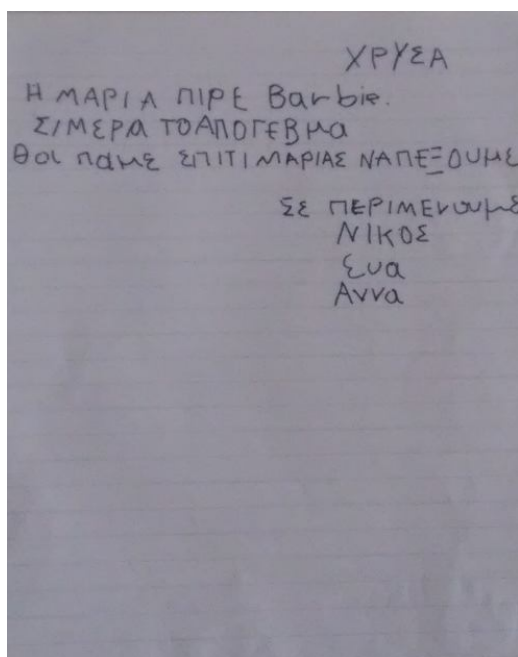 ΧΡΥΣΑ
Η ΜΑΡΙΑ ΠΙΡΕ Barbie.
ΣΙΜΕΡΑ ΤΟΑΠΟΓΕΒΜΑ
θα παμε ΣΠΙΤΙ ΜΑΡΙΑΣ ΝΑΠΕΞΟΥΜΕ
ΣΕ ΠΕΡΙΜΕνουμε
ΝΙΚΟΣ
Ευα
Αννα